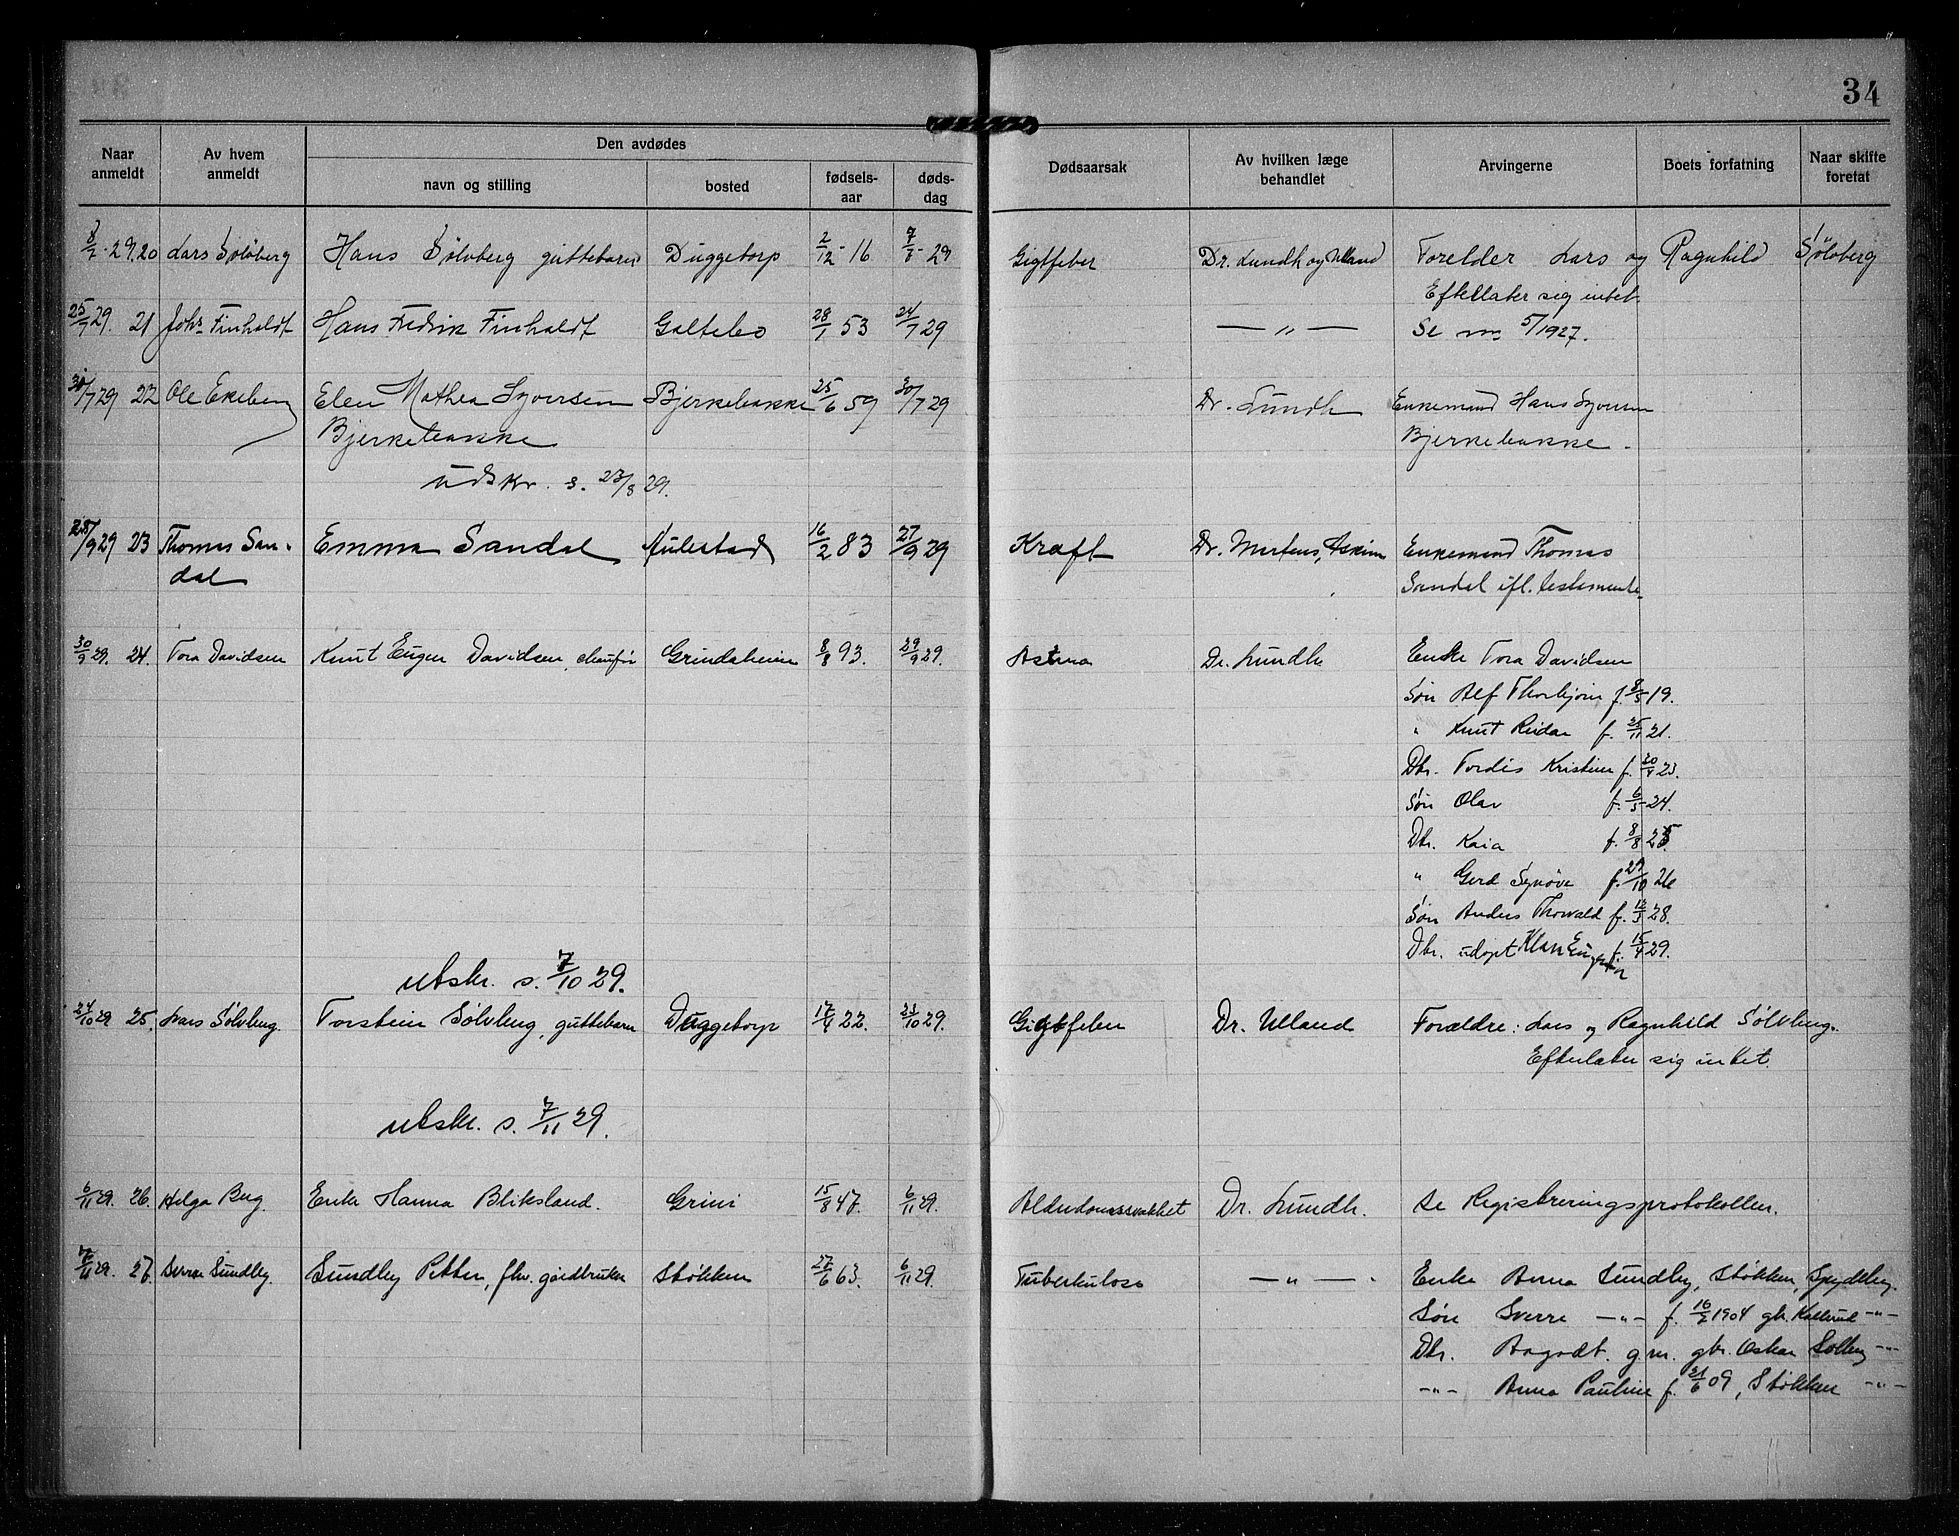 34
Naar anmeldt
Av hvem anmeldt
Den avdødes
navn og stilling
bosted
fødsels-aar
døds-dag
Dødsaarsak
Av hvilken læge behandlet
Arvingerne
Boets forfatning
Naar skifte foretat
29. 20 Lars Sølvberg Hans Sølvberg guttebarn Duggetorp 2/12-16 29 Gigtfeber Dr. Lundh og Ulland Forelder Lars og Ragnhild Sølvberg
Efterlater sig intet
25/7 29. 21 Johs Finholdt Hans Fredrik Finholdt Galtebo 28/1 53 24/7 29 — " — Se no 5/1927.
30/7 29 22 Ole Ekeberg Elen Mathea Syversen Bjerkebakke 25/6 59 30/7 29 Dr. Lundh Enkemand Hans Syversen
Bjerkebakke Bjerkebakke.
udskr. s. 23/8 29.
28/9 29 23 Thomas San- Emma Sandal Aulestad 16/2 83 27/9 29 Kræft Dr. Mertens, Askim Enkemand Thomas
dal Sandal ifl. testamente.
30/9 29. 24. Tora Davidsen Knut Eugen Davidsen, chaufør Grindsheim 8/8 93. 29/9 29. Astma Dr. Lundh Enke Tora Davidsen
Søn Alf Thorbjørn f. 8/5 19.
" Knut Reidar f. 25/11 21.
Dtr. Tordis Kristine f. 20/4 23.
Søn Olav f. 6/5 24.
Dtr. Kaia f. 8/8 25
" Gerd Synøve f. 29/10 26
Søn Anders Thorvald f. 12/3 28.
Dtr. udøpt Klara Eugenie f. 15/4 29.
utskr. s. 7/10 29.
24/10 29 25. Lars Sølvberg. Torstein Sølvberg, guttebarn Duggetorp 17/4 22. 23/10 29. Gigtfeber Dr. Ulland Forældre: Lars og Ragnhild Sølvberg.
Efterlater sig intet.
utskr. s. 7/11 29.
6/11 29. 26. Helga Berg. Enke Hanna Bliksland. Grini 15/8 47. 6/11 29. Alderdomssvakhet Dr. Lundh. Se Registreringsprotokollen.
7/11 29. 27. Sverre Sundby. Sundby Petter, fhv. gårdbruker Støkken 27/6 63. 6/11 29. Tuberkulose — " — Enke Anna Sundby, Støkken, Spydeberg.
Søn Sverre — " — f. 16/2 1904 gbr. Kallerud — " —
Dtr. Aagodt. g.m. gbr. Oskar Solberg — " —
— " — Anna Pauline f. 21/6 09, Støkken — " —